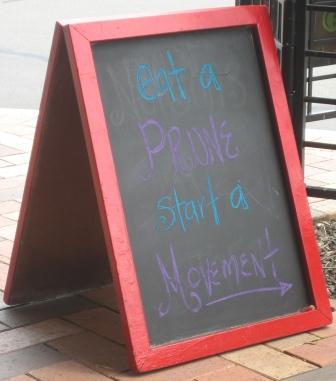 eat a
PRUNE
start a
MOVEMENT